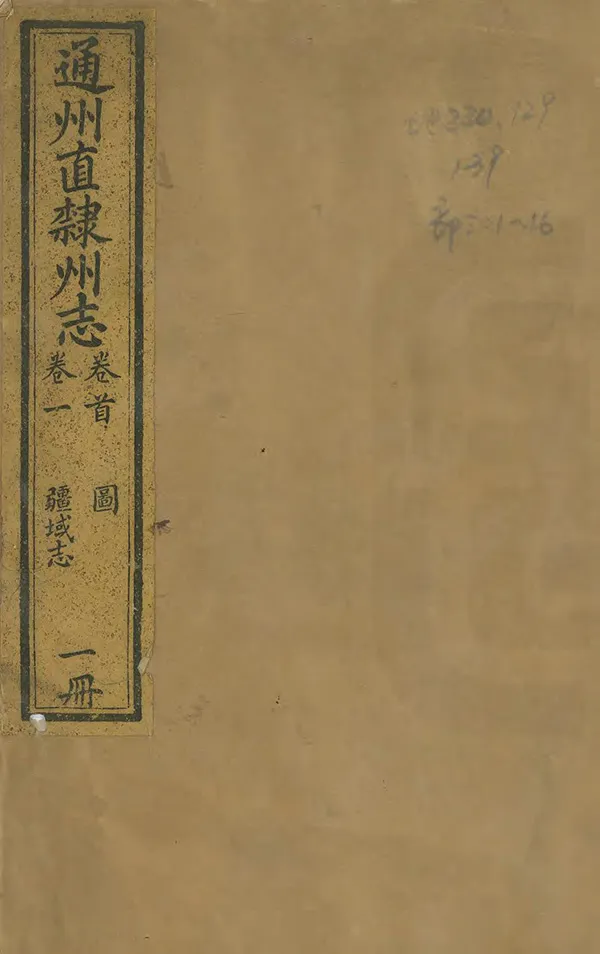 通州直隸州志
卷首 圖
卷一 疆域志
一冊
地330.129
139
部:1-16